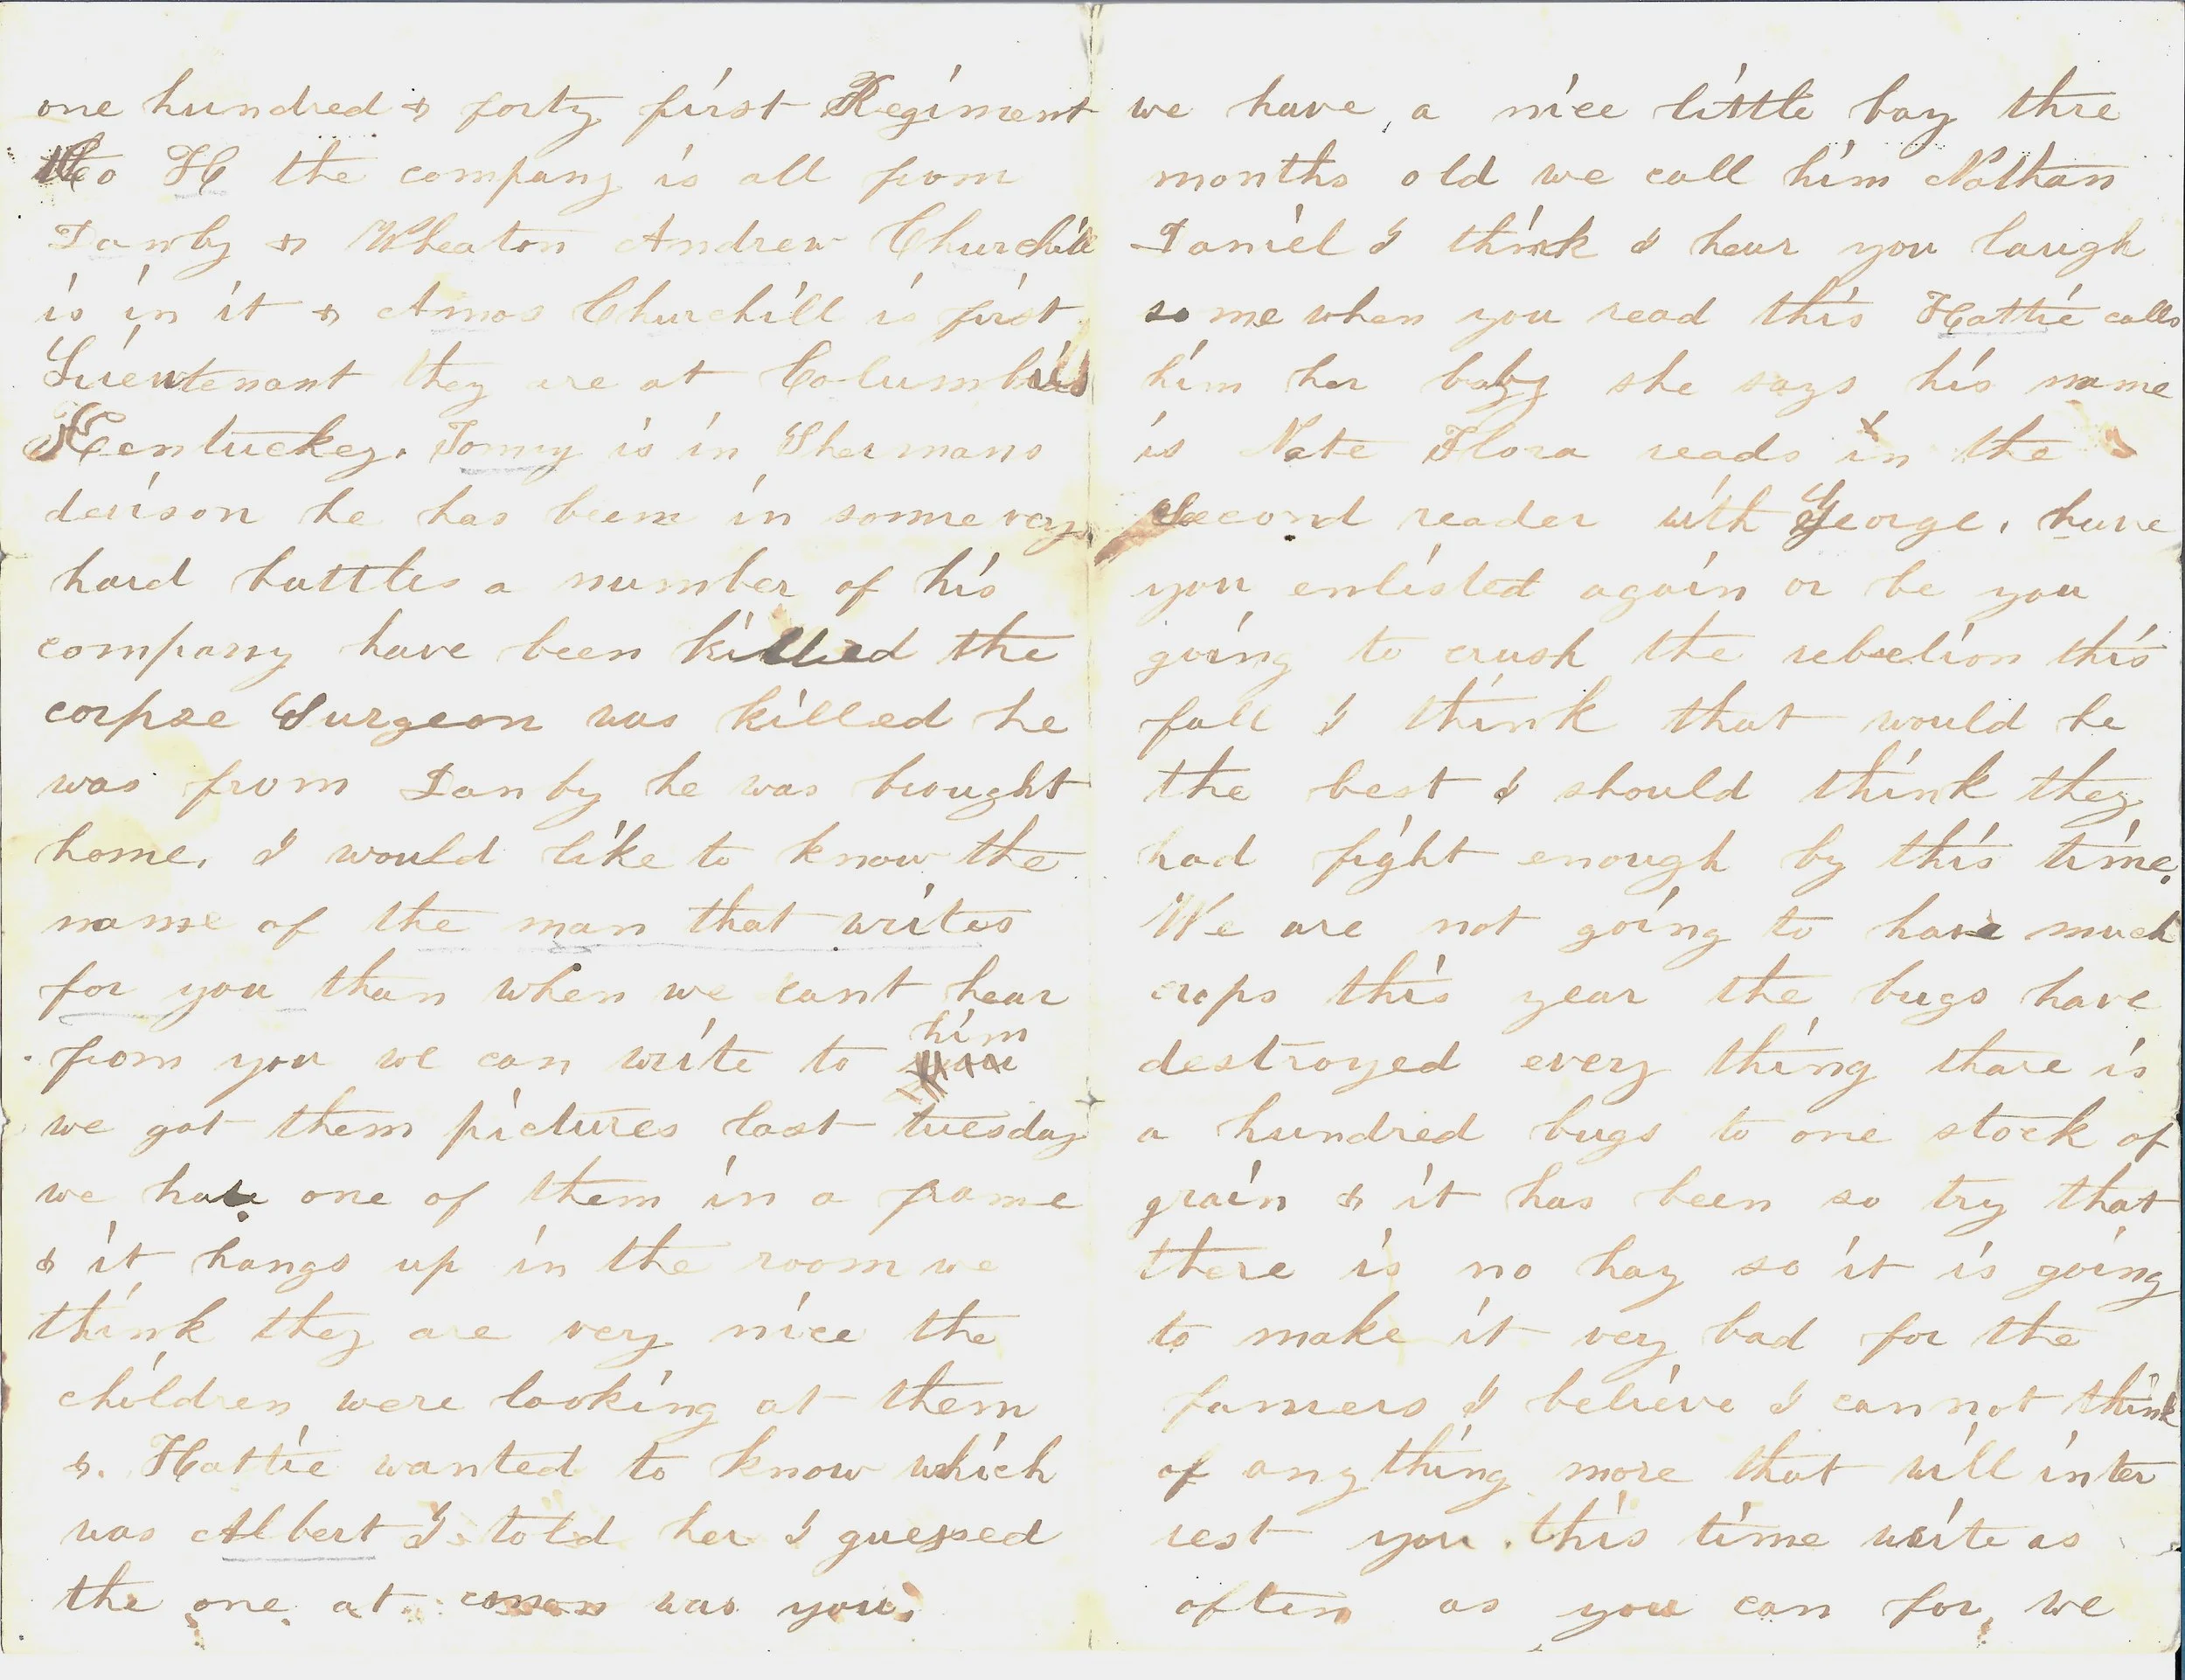 one hundred & forty first Regiment
Co H the company is all from
Danby & Wheaton Andrew Churchill
is in it & Amos Churchill is first
Lieutenant they are at Columbus
Kentuckey. Tommy is in Shermans
devison he has been in some very
hard battles a number of his
company have been killed the
corpse Surgeon was killed he
was from Danby he was brought
home. I would like to know the
name of the man that writes
for you than when we cant hear
from you we can write to him
we got them pictures last tuesday
we have one of them in a frame
& it hangs up in the room we
think they are very nice the
children were looking at them
&. Hattie wanted to know which
was Albert I told her I guessed
the one at was you.
we have a nice little boy thre
months old we call him Nathan
Daniel I think I hear you laugh
some when you read this Hattie calls
him her baby she says his name
is Nate Flora reads in the
Second reader with George. have
you enlisted again or be you
going to crush the rebelion this
fall I think that would be
the best I should think they
had fight enough by this time.
We are not going to have much
crops this year the bugs have
destroyed every thing thare is
a hundred bugs to one stock of
grain & it has been so try that
there is no hay so it is going
to make it very bad for the
famers I believe I cannot think
of any thing more that will inter
rest you this time write as
often as you can for we